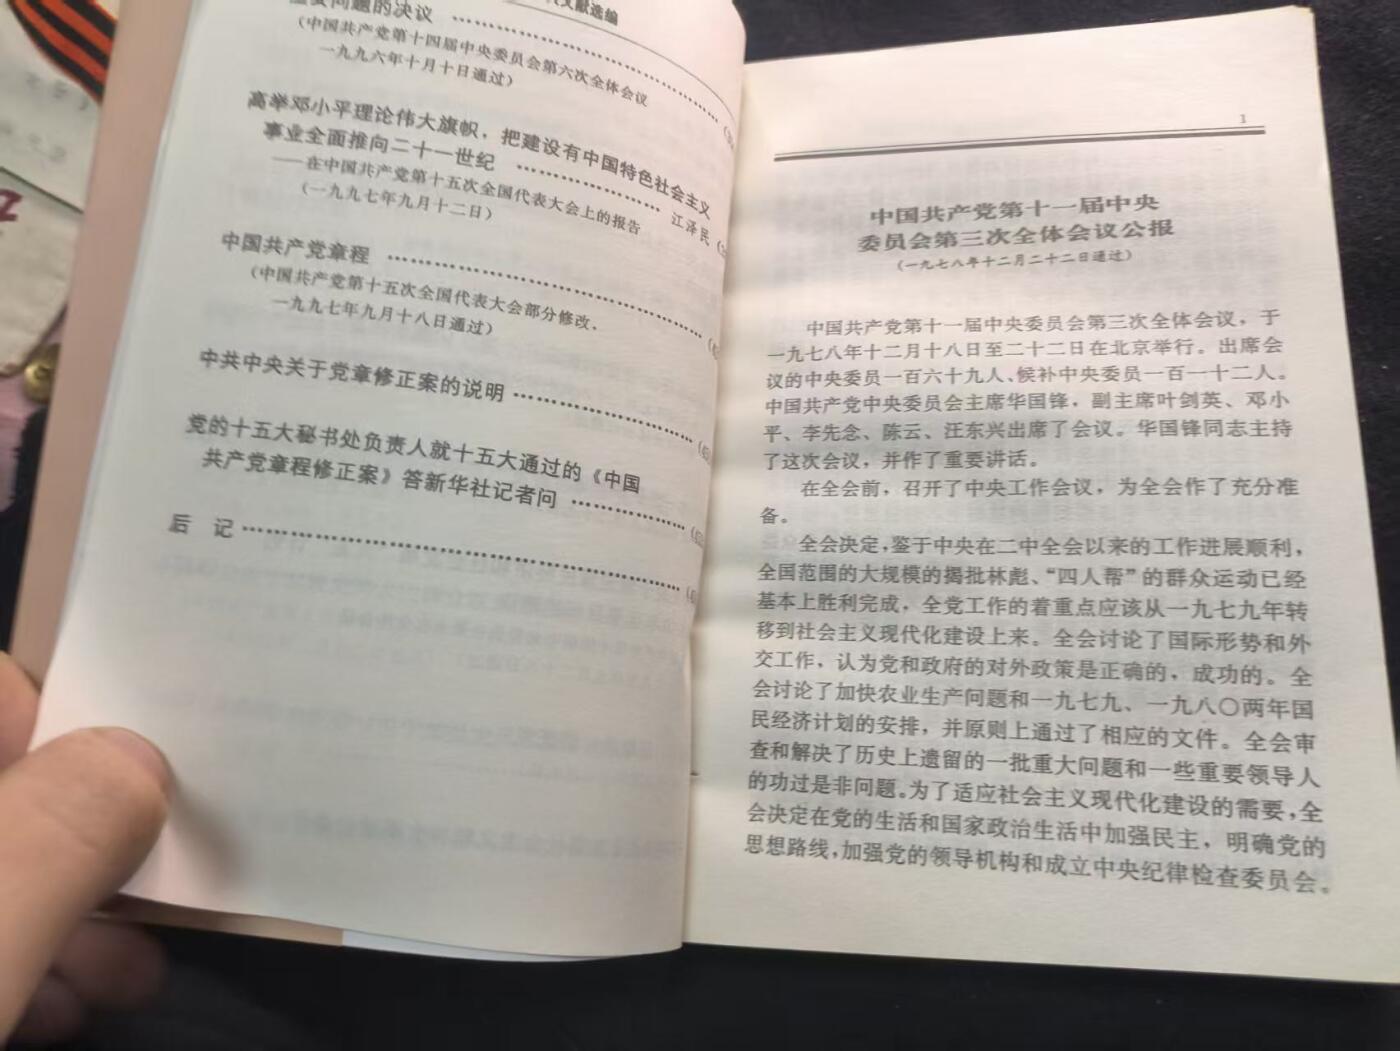 文献选编
问题的决议
(中国共产党第十四届中央委员会第六次全体会议
一九九六年十月十日通过)
高举邓小平理论伟大旗帜,把建设有中国特色社会主义
事业全面推向二十一世纪
——在中国共产党第十五次全国代表大会上的报告
(一九九七年九月十二日) 江泽民
中国共产党章程
(中国共产党第十五次全国代表大会部分修改、
一九九七年九月十八日通过)
中共中央关于党章修正案的说明
党的十五大秘书处负责人就十五大通过的《中国
共产党章程修正案》答新华社记者问
后 记
1
中国共产党第十一届中央
委员会第三次全体会议公报
(一九七八年十二月二十二日通过)
中国共产党第十一届中央委员会第三次全体会议,于
一九七八年十二月十八日至二十二日在北京举行。出席会
议的中央委员一百六十九人、候补中央委员一百一十二人。
中国共产党中央委员会主席华国锋,副主席叶剑英、邓小
平、李先念、陈云、汪东兴出席了会议。华国锋同志主持
了这次会议,并作了重要讲话。
在全会前,召开了中央工作会议,为全会作了充分准
备。
全会决定,鉴于中央在二中全会以来的工作进展顺利,
全国范围的大规模的揭批林彪、“四人帮”的群众运动已经
基本上胜利完成,全党工作的着重点应该从一九七九年转
移到社会主义现代化建设上来。全会讨论了国际形势和外
交工作,认为党和政府的对外政策是正确的,成功的。全
会讨论了加快农业生产问题和一九七九、一九八〇两年国
民经济计划的安排,并原则上通过了相应的文件。全会审
查和解决了历史上遗留的一批重大问题和一些重要领导人
的功过是非问题。为了适应社会主义现代化建设的需要,全
会决定在党的生活和国家政治生活中加强民主,明确党的
思想路线,加强党的领导机构和成立中央纪律检查委员会。